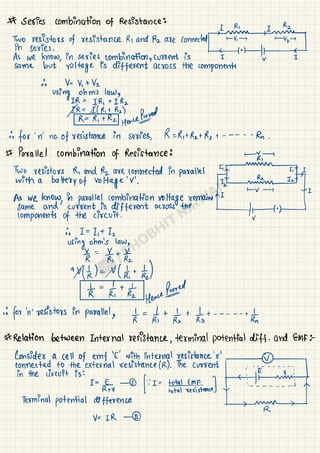 * Series combination of Resistance:
Two resistors of resistance R1 and R2 are connected
in series.
As we know, in series combination, current is
same but voltage is different across the components
I R1 I R2
V1 V2
I V I
∴ V = V1 + V2
using ohm's law,
IR = IR1 + IR2
IR = I(R1 + R2)
R = R1 + R2 Hence Proved
∴ for 'n' no. of resistance in series, R = R1 + R2 + R3 + ------ Rn.
* Parallel combination of Resistance:
Two resistors R1 and R2 are connected in parallel
with a battery of voltage 'V'.
As we know, in parallel combination voltage remains
same and current is different across the
components of the circuit.
V
R1
I1 I1
I2 I2
R2
V
I I
V
∴ I = I1 + I2
using ohm's law,
V/R = V/R1 + V/R2
V(1/R) = V(1/R1 + 1/R2)
1/R = 1/R1 + 1/R2 Hence Proved
∴ for 'n' resistors in parallel, 1/R = 1/R1 + 1/R2 + 1/R3 + ------ + 1/Rn
* Relation between Internal resistance, terminal potential diff. and EMF:-
Consider a cell of emf 'E' with internal resistance 'r'
connected to the external resistance (R). The current
in the circuit is:
I = E/R+r —① [∵ I = total EMF / total resistance]
Terminal potential difference
V = IR —②
V
E r
R